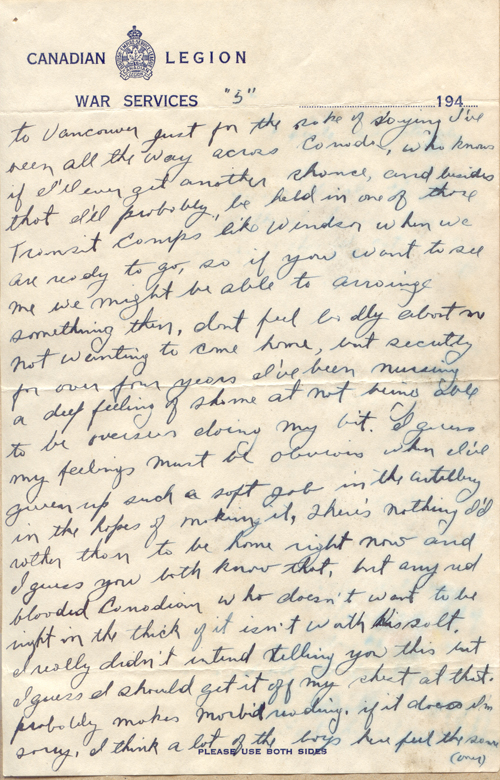 CANADIAN LEGION
WAR SERVICES "5" 194
to Vancouver just for the sake of saying I've
been all the way across Canada, who knows
if I'll ever get another chance, and besides
that I'll probably, be held in one of those
Transit Camps like Windsor when we
are ready to go, so if you want to see
me we might be able to arrainge
something then, dont feel badly about m
not wanting to come home, but secretly
for over four years I've been nursing
a deep feeling of shame at not being able
to be overseas doing my bit. I guess
my feelings must be obvious when I've
given up such a soft job in the artillery
in the hopes of making it, there's nothing I'd
rather than to be home right now and
I guess you both know that, but any red
blooded Canadian who doesn't want to be
right in the thick of it isn't worth his salt.
I really didn't intend telling you this but
I guess I should get it off my chest at that.
probably makes morbid reading. if it does I'm
sorry, I think a lot of the boys here feel the same
PLEASE USE BOTH SIDES
(over)